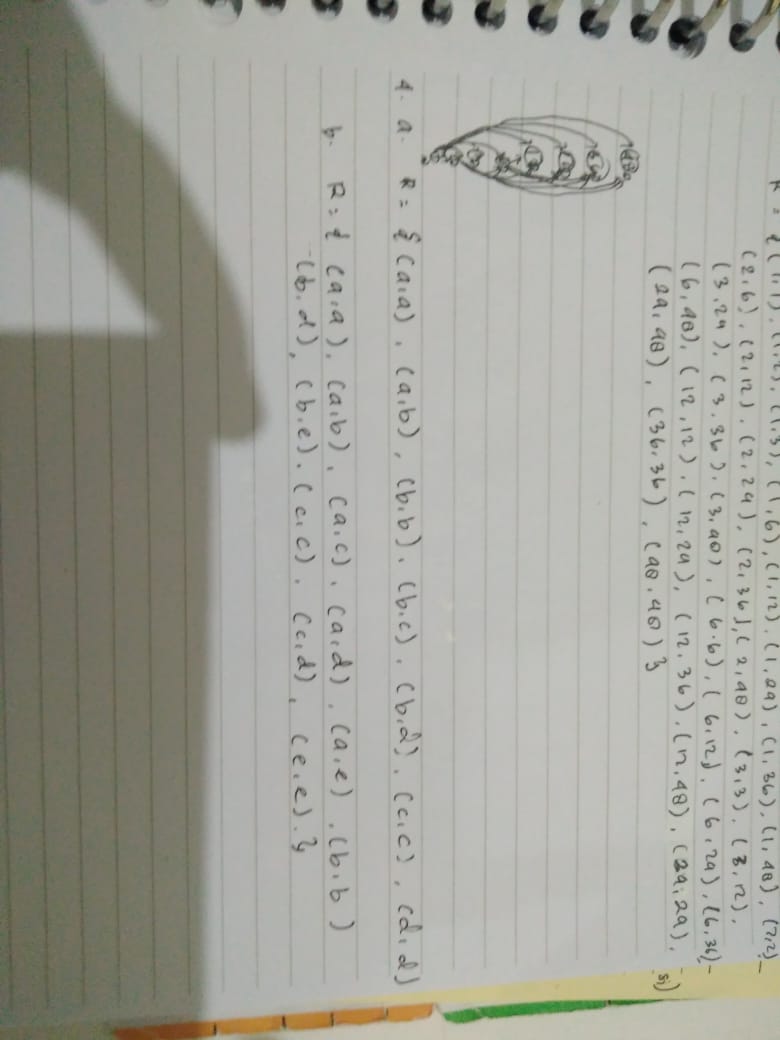 R = {(1,1), (1,2), (1,3), (1,6), (1,12), (1,24), (1,36), (1,48), (2,2)
(2,6), (2,12), (2,24), (2,36), (2,48), (3,3), (3,12),
(3,24), (3,36), (3,48), (6,6), (6,12), (6,24), (6,36)
(6,48), (12,12), (12,24), (12,36), (12,48), (24,24),
(24,48), (36,36), (48,48)}
4. a. R = {(a,a), (a,b), (b,b), (b,c), (b,d), (c,c), (d,d)
b. R = {(a,a), (a,b), (a,c), (a,d), (a,e), (b,b)
(b,d), (b,e), (c,c), (c,d), (e,e).}